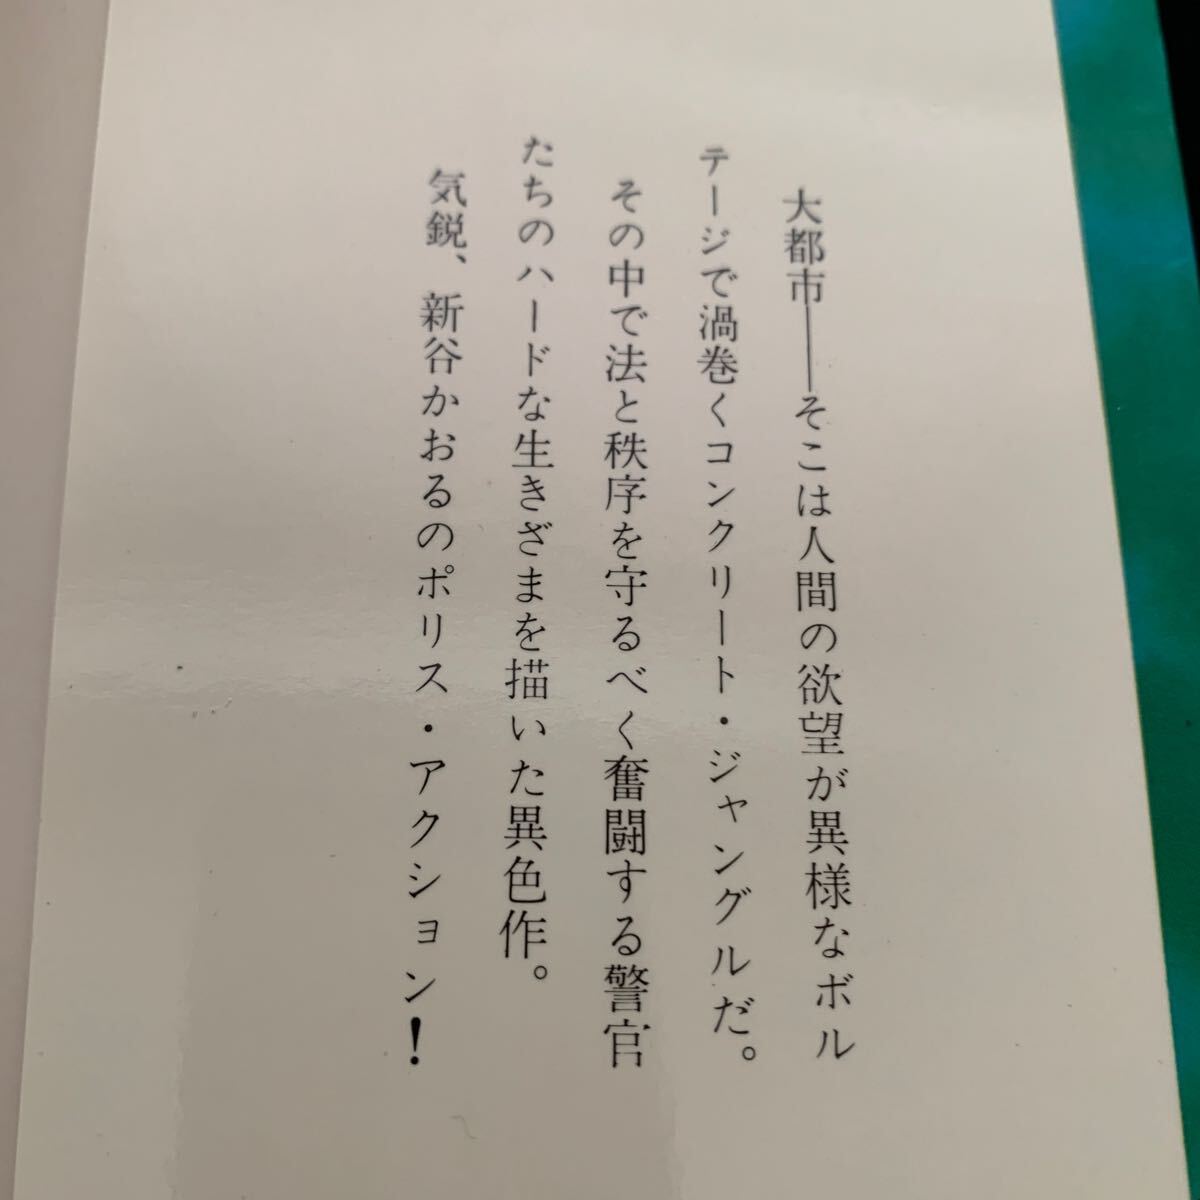 大都市――そこは人間の欲望が異様なボル
テージで渦巻くコンクリート・ジャングルだ。
その中で法と秩序を守るべく奮闘する警官
たちのハードな生きざまを描いた異色作。
気鋭、新谷かおるのポリス・アクション！